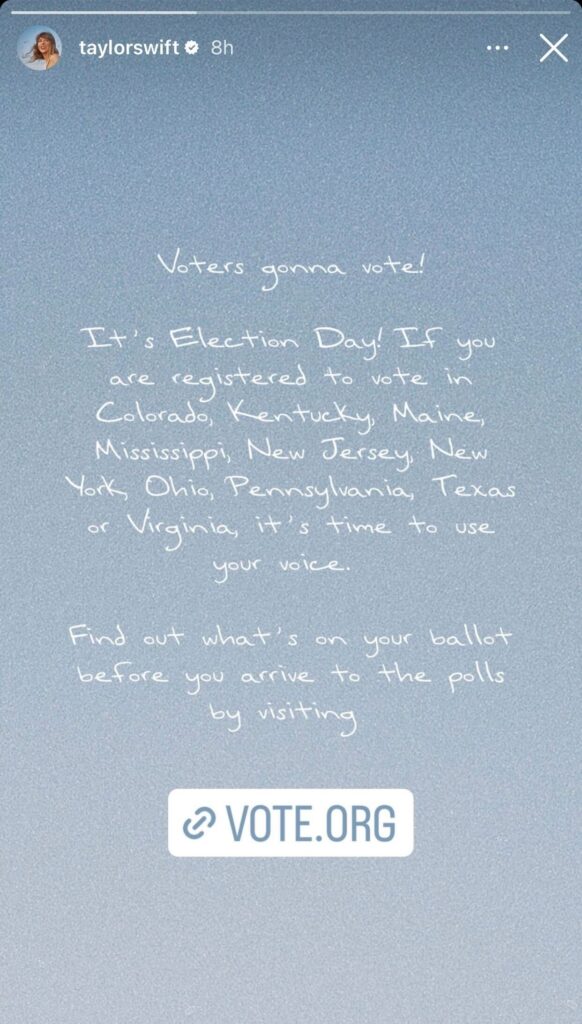 taylorswift 8h
Voters gonna vote!
It's Election Day! If you
are registered to vote in
Colorado, Kentucky, Maine,
Mississippi, New Jersey, New
York, Ohio, Pennsylvania, Texas
or Virginia, it's time to use
your voice.
Find out what's on your ballot
before you arrive to the polls
by visiting
VOTE.ORG